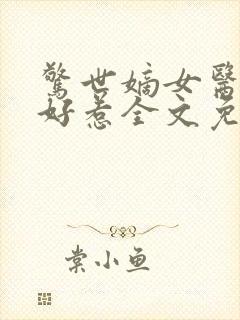 驚世嫡女醫
好惹全文免
棠小鱼